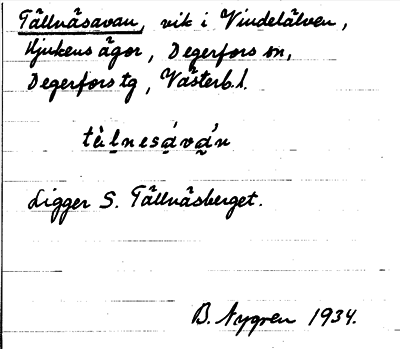 Tällnäsavan, vik i Vindelälven,
Hjukens ägor, Degerfors sn,
Degerfors tg, Västerb. l.
tὲḷnesa̯vá̯n
Ligger S. Tällnäsberget.
B. Nygren 1934.